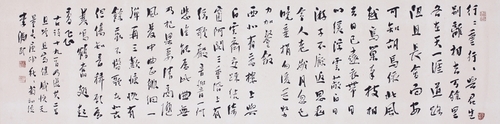 行二重行二與君生
別離相去萬餘里
各在天一涯道路
阻且長會面安
可知胡馬依北風
越鳥巢南枝相
去日已遠衣帶日
已緩浮雲蔽白日
遊子不顧返思君
令人老歲月忽已
晚棄捐勿復道努
力加餐飯
西北有高樓上與
浮雲齊交疏結綺
窗阿閣三重階上有
絃歌聲音響一何
悲誰能為此曲無
乃杞梁妻清商隨
風發中曲正徘徊一
彈再三歎慷慨有
餘哀不惜歌者苦
但傷知音稀願為
雙鴻鵠奮翅起高
飛